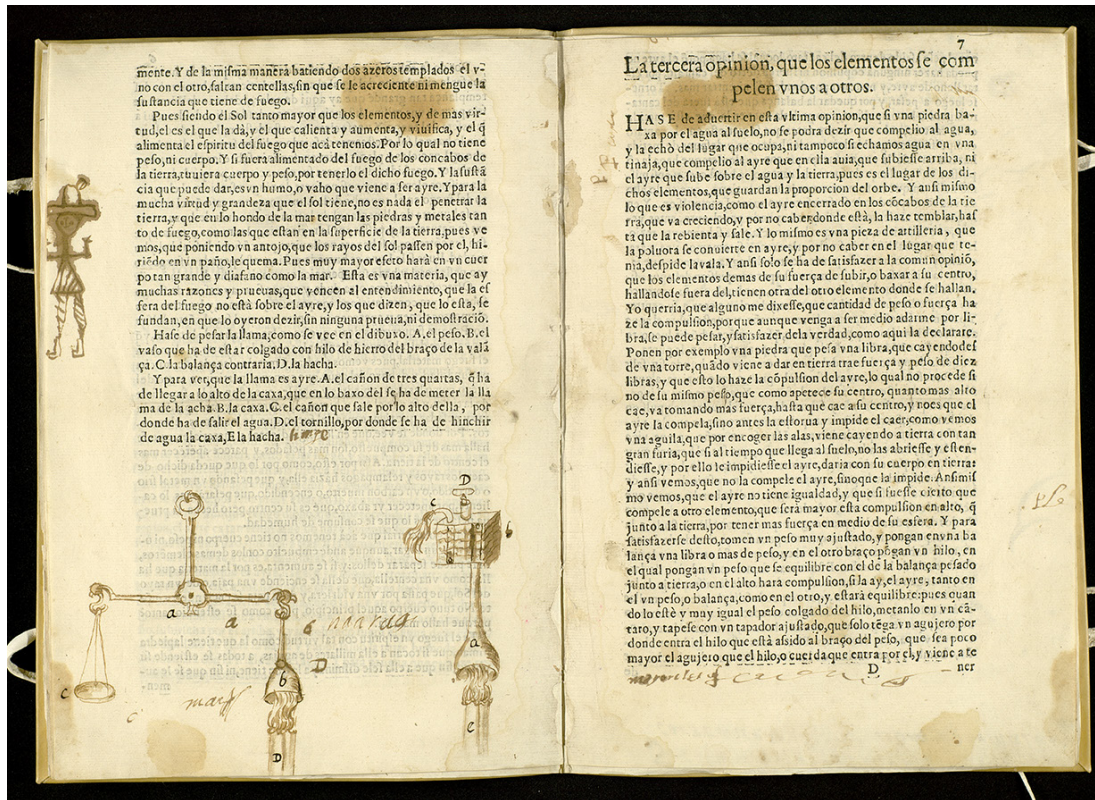 mente. Y de la misma manera batiendo dos azeros templados el v-
no con el otro, saltan centellas, sin que se le acreciente ni mengue la
sustancia que tiene de fuego.
Pues siendo el Sol tanto mayor que los elementos, y de mas vir-
tud, el es el que la dà, y el que calienta y aumenta, y viuifica, y el q̃
alimenta el espiritu del fuego que acà tenemos. Por lo qual no tiene
peso, ni cuerpo. Y si fuera alimentado del fuego de los concabos de
la tierra, tuuiera cuerpo y peso, por tenerlo el dicho fuego. Y la sustã
cia que puede dar, es vn humo, o vaho que viene a ser ayre. Y para la
mucha virtud y grandeza que el sol tiene, no es nada el penetrar la
tierra, y que en lo hondo de la mar tengan las piedras y metales tan
to de fuego, como las que estan en la superficie de la tierra, pues ve
mos, que poniendo vn antojo, que los rayos del sol passen por el, hi-
riẽdo en vn paño, le quema. Pues muy mayor efeto harà en vn cuer
po tan grande y diafano como la mar. Esta es vna materia, que ay
muchas razones y prueuas, que vencen al entendimiento, que la es
fera del fuego no està sobre el ayre, y los que dizen, que lo esta, se
fundan, en que lo oyeron dezir, sin ninguna prueua, ni demostraciõ.
Hase de pesar la llama, como se vee en el dibuxo. A, el peso. B. el
vaso que ha de estar colgado con hilo de hierro del braço de la valã
ça. C. la balança contraria. D. la hacha.
Y para ver, que la llama es ayre. A. el cañon de tres quartas, q̃ ha
de llegar a lo alto de la caxa, que en lo baxo del se ha de meter la lla
ma de la acha. B. la caxa. C. el cañon que sale por lo alto della, por
donde ha de salir el agua. D. el tornillo, por donde se ha de hinchir
de agua la caxa, E la hacha.
D
c
b
B
a
a
a
b
D
c
c
D
e
7
La tercera opinion, que los elementos se com
pelen vnos a otros.
HASE de aduertir en esta vltima opinion, que si vna piedra ba-
xa por el agua al suelo, no se podra dezir que compelio al agua,
y la echò del lugar que ocupa, ni tampoco si echamos agua en vna
tinaja, que compelio al ayre que en ella auia, que subiesse arriba, ni
el ayre que sube sobre el agua y la tierra, pues es el lugar de los di-
chos elementos, que guardan la proporcion del orbe. Y ansi mismo
lo que es violencia, como el ayre encerrado en los cõcabos de la tie
rra, que va creciendo, y por no caber donde està, la haze temblar, has
ta que la rebienta y sale. Y lo mismo es vna pieza de artilleria, que
la poluora se conuierte en ayre, y por no caber en el lugar que te-
nia, despide la vala. Y ansi solo se ha de satisfazer a la comun opiniõ,
que los elementos demas de su fuerça de subir, o baxar a su centro,
hallandose fuera del, tienen otra del otro elemento donde se hallan.
Yo querria, que alguno me dixesse, que cantidad de peso o fuerça ha
ze la compulsion, porque aunque venga a ser medio adarme por li-
bra, se puede pesar, y satisfazer de la verdad, como aqui la declarare.
Ponen por exemplo vna piedra que pesa vna libra, que cayendo des
de vna torre, quãdo viene a dar en tierra trae fuerça y peso de diez
libras, y que esto lo haze la cõpulsion del ayre, lo qual no procede si
no de su mismo peso, que como apetece su centro, quanto mas alto
cae, va tomando mas fuerça, hasta que cae a su centro, y no es que el
ayre la compela, sino antes la estorua y impide el caer, como vemos
vna aguila, que por encoger las alas, viene cayendo a tierra con tan
gran furia, que si al tiempo que llega al suelo, no las abriesse y esten-
diesse, y por ello le impidiesse el ayre, daria con su cuerpo en tierra:
y ansi vemos, que no la compele el ayre, sino que la impide. Ansimis
mo vemos, que el ayre no tiene igualdad, y que si fuesse cierto que
compele a otro elemento, que serà mayor esta compulsion en alto, q̃
junto a la tierra, por tener mas fuerça en medio de su esfera. Y para
satisfazerse desto, tomen vn peso muy ajustado, y pongan en vna ba
lança vna libra o mas de peso, y en el otro braço põgan vn hilo, en
el qual pongan vn peso que se equilibre con el de la balança pesado
junto a tierra, o en el alto hara compulsion, si la ay, el ayre, tanto en
el vn peso, o balança, como en el otro, y estarà equilibre: pues quan
do lo estè y muy igual el peso colgado del hilo, metanlo en vn cã-
taro, y tapese con vn tapador ajustado, que solo tẽga vn agujero por
donde entra el hilo que està assido al braço del peso, que sea poco
mayor el agujero que el hilo, o cuerda que entra por el, y viene a te
D
ner